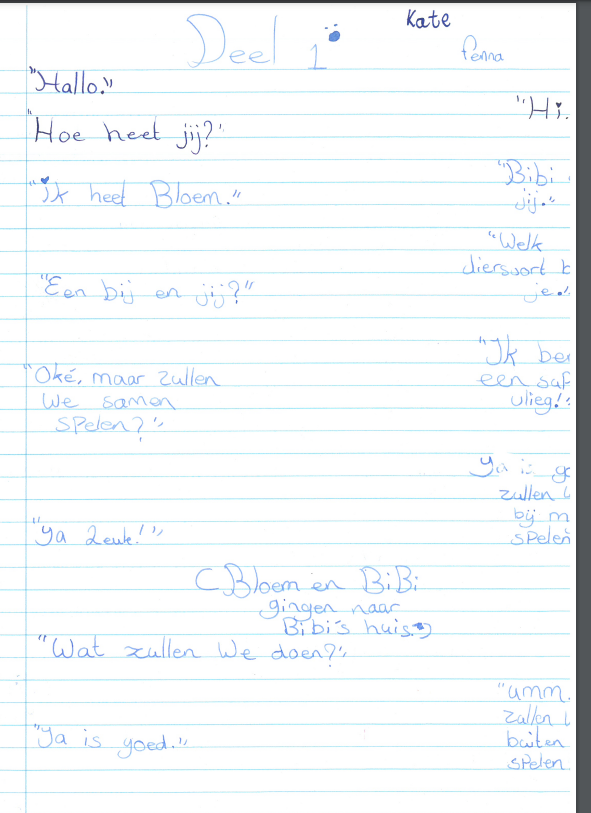 Kate
Deel 1
Penna
"Hallo."
"Hi.
"Hoe heet jij?"
"Bibi
jij."
"ik heet Bloem."
"Welk
diersoort
je..
"Een bij en jij?"
"Ik
een
vlieg!"
"Oké, maar zullen
we samen
spelen?"
Ya is
zullen
bij
spelen
"ya Leuk!"
(Bloem en BiBi
gingen naar
Bibi's huis.)
"Wat zullen We doen?"
"umm.
zullen
buiten
spelen
"Ya is goed."